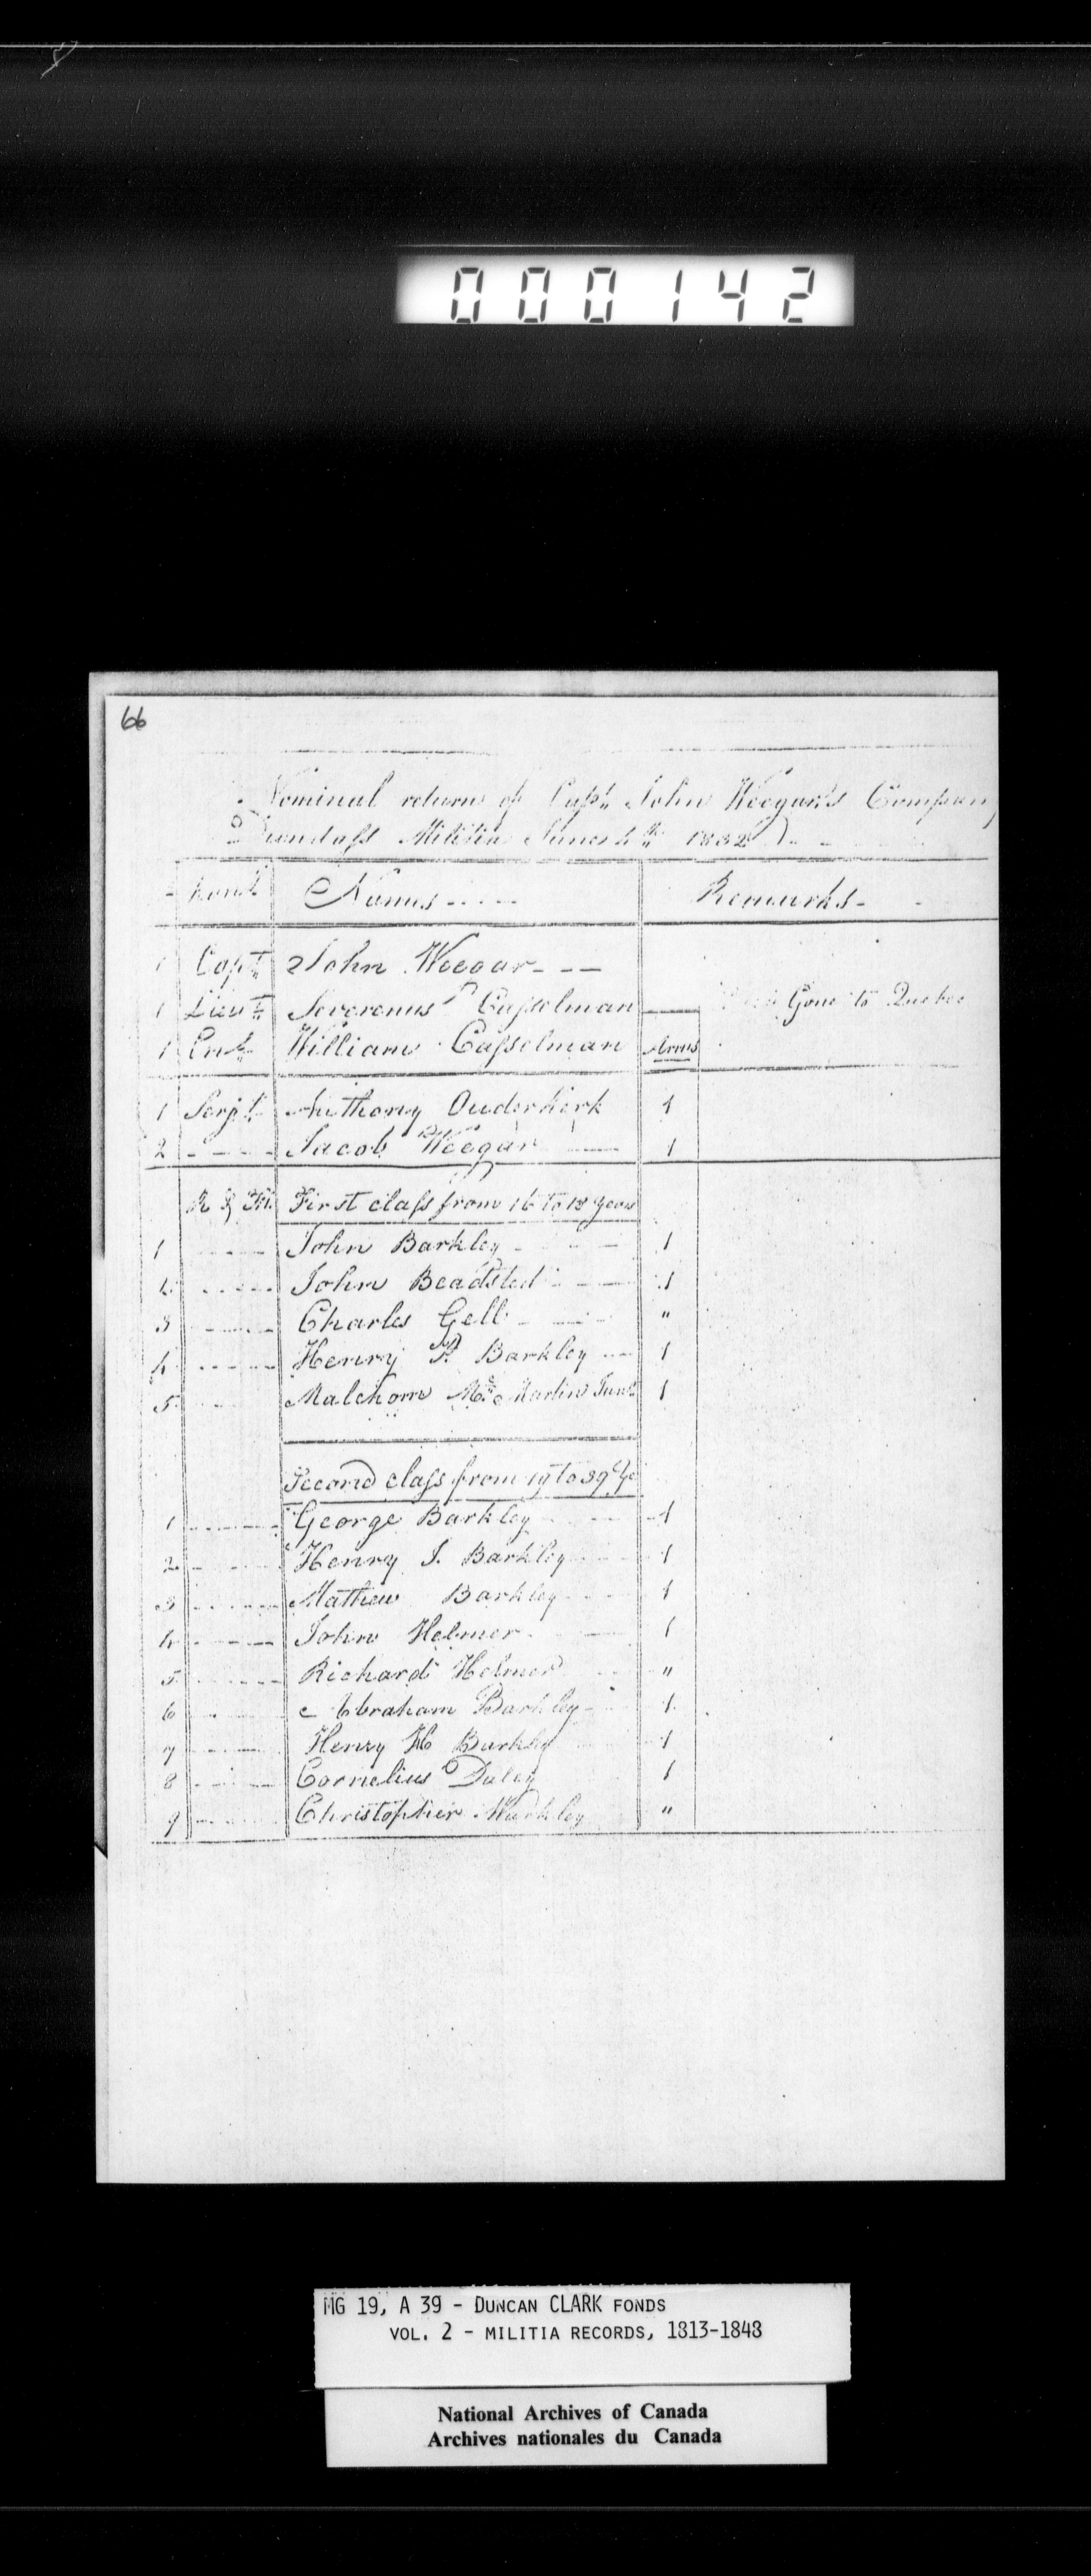 000142
66
Nominal return of Capt. John Weegar's Company
Dundass Militia June 4th 1832
Rank Names Remarks
1 Capt John Weegar
1 Lieut Severenus Casselman Gone to Quebec
1 Ens William Casselman Arms
1 Serjt Anthony Ouderkerk 1
2 Jacob Weegar 1
R & File First class from 16 to 18 years
1 John Barkley 1
2 John Beadsted 1
3 Charles Gell "
4 Henry P. Barkley 1
5 Malchom McMartin Junr 1
Second class from 19 to 39
1 George Barkley 1
2 Henry J. Barkley 1
3 Mathew Barkley 1
4 John Helmer 1
5 Richard Helmer "
6 Abraham Barkley 1
7 Henry H Barkley 1
8 Cornelius Daley 1
9 Christopher Markley "
MG 19, A 39 - DUNCAN CLARK FONDS
VOL. 2 - MILITIA RECORDS, 1813-1848
National Archives of Canada
Archives nationales du Canada